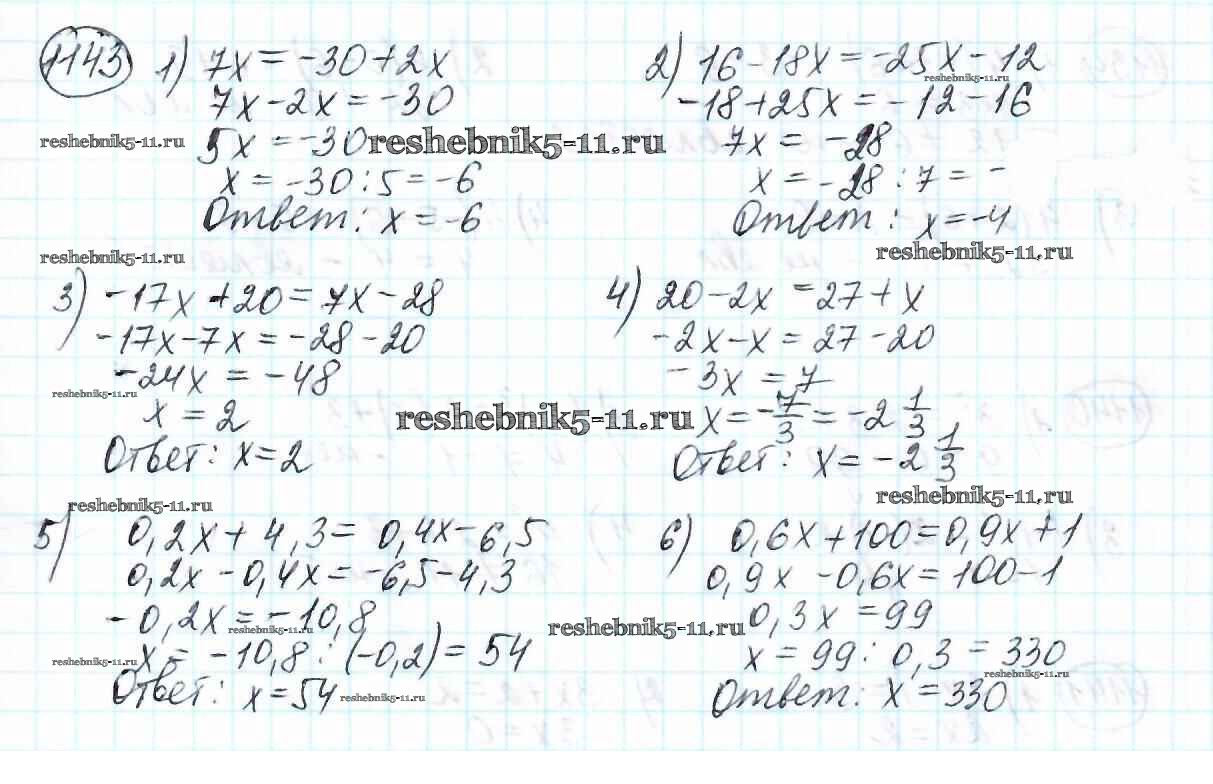 1143
1) 7x = -30 + 2x
7x - 2x = -30
reshebnik5-11.ru
5x = -30
reshebnik5-11.ru
x = -30 : 5 = -6
Ответ: x = -6
2) 16 - 18x = -25x - 12
reshebnik5-11.ru
-18 + 25x = -12 - 16
7x = -28
x = -28 : 7 = -
Ответ: x = -4
reshebnik5-11.ru
reshebnik5-11.ru
3) -17x + 20 = 7x - 28
-17x - 7x = -28 - 20
-24x = -48
reshebnik5-11.ru
x = 2
reshebnik5-11.ru
Ответ: x = 2
4) 20 - 2x = 27 + x
-2x - x = 27 - 20
-3x = 7
x = -7/3 = -2 1/3
Ответ: x = -2 1/3
reshebnik5-11.ru
reshebnik5-11.ru
5) 0,2x + 4,3 = 0,4x - 6,5
0,2x - 0,4x = -6,5 - 4,3
-0,2x = -10,8
reshebnik5-11.ru
x = -10,8 : (-0,2) = 54
reshebnik5-11.ru
Ответ: x = 54
reshebnik5-11.ru
6) 0,6x + 100 = 0,9x + 1
0,9x - 0,6x = 100 - 1
0,3x = 99
reshebnik5-11.ru
x = 99 : 0,3 = 330
reshebnik5-11.ru
Ответ: x = 330